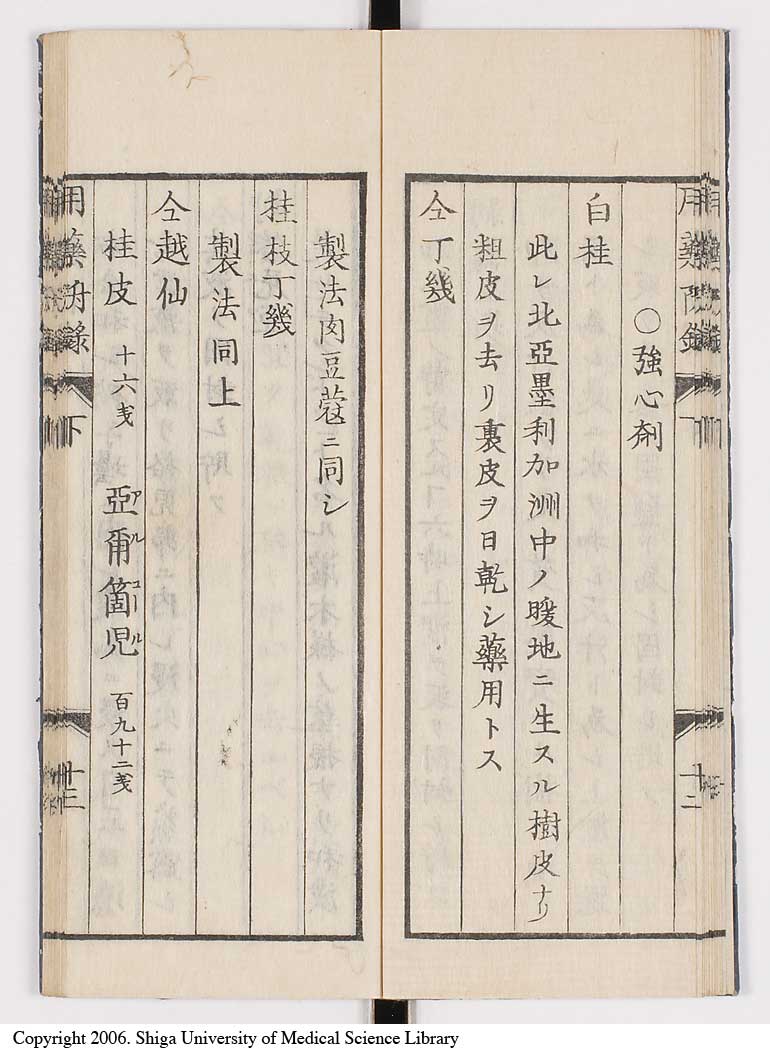 ○強心劑
白桂
此レ北亞墨利加洲中ノ暖地ニ生スル樹皮ナリ
粗皮ヲ去リ裏皮ヲ日乾シ藥用トス
仝丁幾
製法肉豆蔲ニ同シ
桂枝丁幾
製法同上
仝越仙
桂皮 十六戔 亞爾箇児 百九十二戔
アルコール
用藥 錄 下 十二
Copyright 2006. Shiga University of Medical Science Library